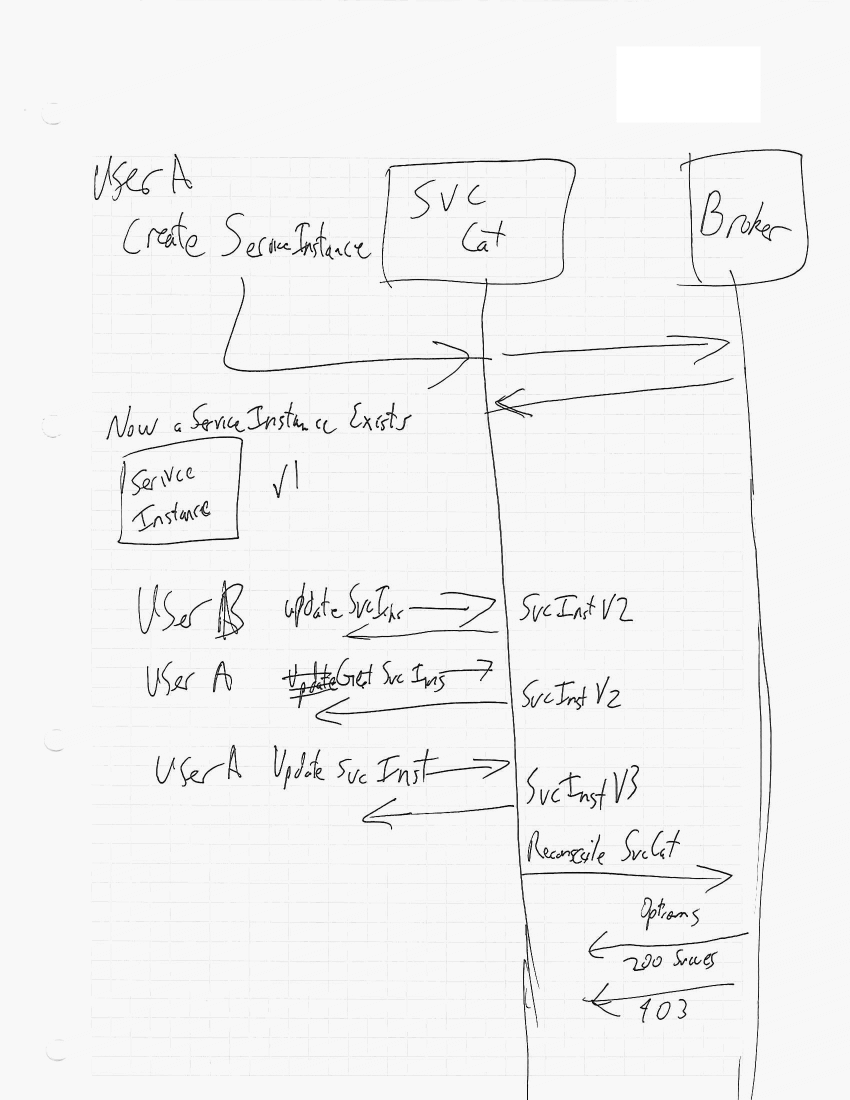 User A
Create ServiceInstance
SVC
Cat
Broker
Now a ServiceInstance Exists
Serivce
Instance
v1
User B update SvcIns
SvcInst V2
User A Update Get Svc Ins
SvcInst V2
User A Update Svc Inst
SvcInst V3
Reconscile SvcCat
Options
200
403